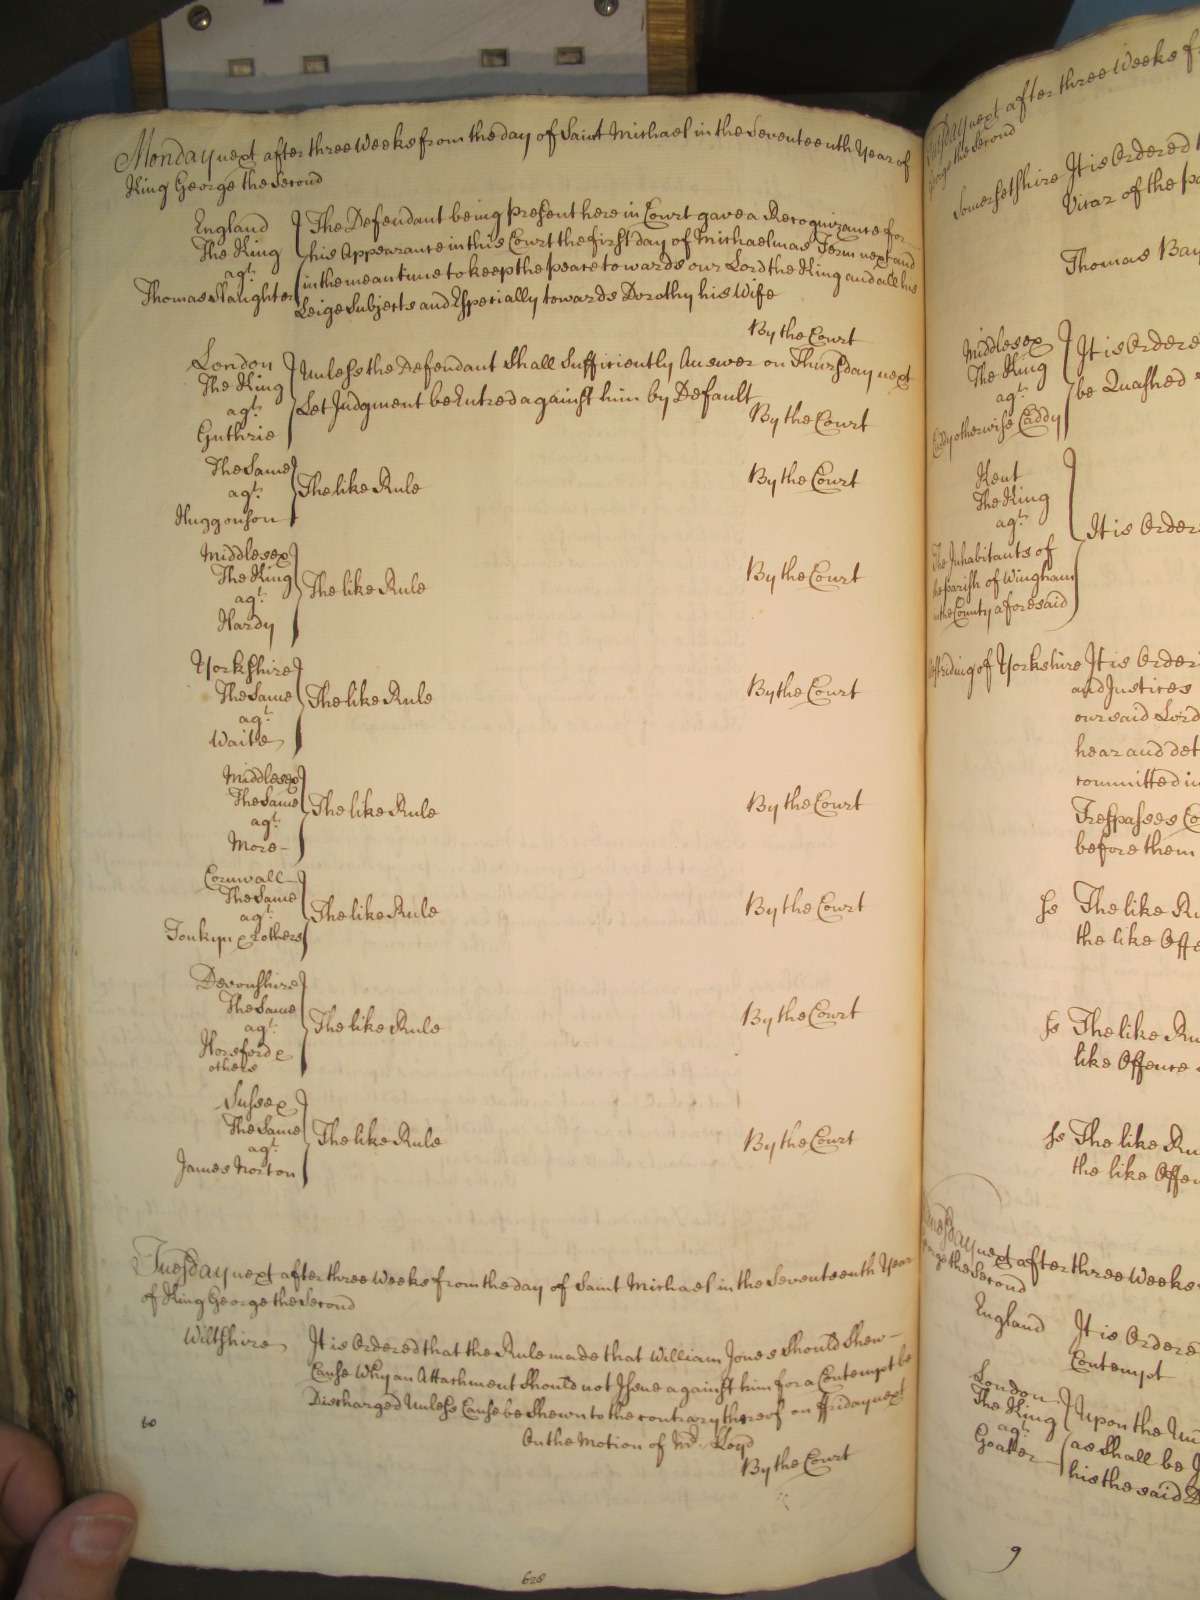 Monday next after three Weeks from the day of Saint Michael in the Seventeenth Year of
King George the Second
England
The King
agt.
Thomas Slaughter
The Defendant being present here in Court gave a Recognizance for
his Appearance in this Court the first day of Michaelmas Term next and
in the mean time to keep the peace towards our Lord the King and all his
Leige Subjects and Especially towards Dorothy his Wife
By the Court
London
The King
agt.
Guthrie
Unless the Defendant Shall Sufficiently Answer on Thursday next
Let Judgment be Entred against him by Default
By the Court
The Same
agt.
Huggonson
The like Rule
By the Court
Middlesex
The King
agt.
Hardy
The like Rule
By the Court
Yorkshire
The Same
agt.
Waite
The like Rule
By the Court
Middlesex
The Same
agt.
More
The like Rule
By the Court
Cornwall
The Same
agt.
Tonkyn & others
The like Rule
By the Court
Devonshire
The Same
agt.
Horsford &
others
The like Rule
By the Court
Sussex
The Same
agt.
James Norton
The like Rule
By the Court
Tuesday next after three Weeks from the day of Saint Michael in the Seventeenth Year
of King George the Second
Wiltshire
It is Ordered that the Rule made that William Jones Should Shew
Cause Why an Attachment Should not Issue against him for a Contempt be
Discharged Unless Cause be Shewn to the contrary thereof on ffriday next
On the Motion of Mr. Lloyd
By the Court
10
628
next after three Weeks
George the Second
Somersetshire It is Ordered
Vicar of the
Thomas
Middlesex
The King
agt.
otherwise Caddy
It is Ordere
be Quashed
Kent
The King
agt.
The Inhabitants of
the parish of Wingham
in the County aforesaid
It is Order
riding of Yorkshire It is Order
and Justices
our said Lord
hear and det
committed in
Trespasses Co
before them
ss The like Ru
the like Offe
ss The like Ru
like Offence
ss The like Ru
the like Offen
next after three Weeks
George the Second
England
It is Ordere
Contempt
London
The King
agt.
Goater
Upon the
as shall be
his the said
9